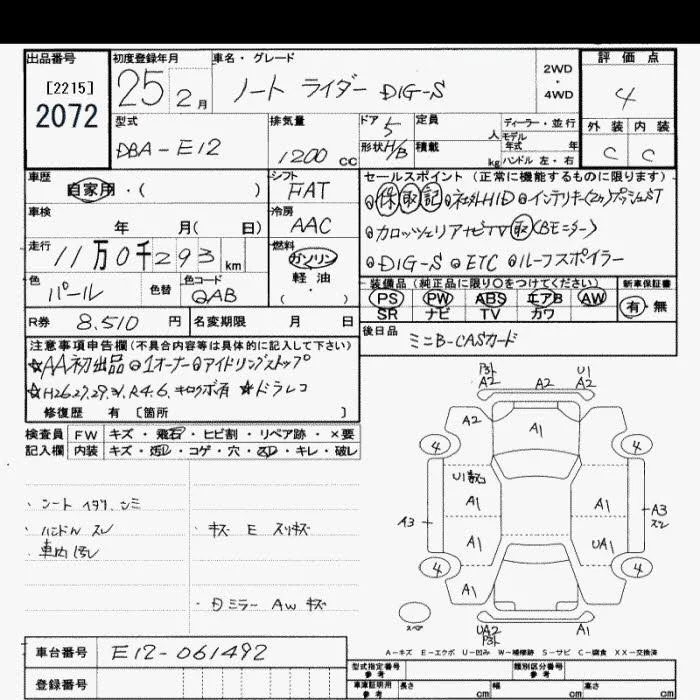 出品番号
[2215]
2072
初度登録年月
25年 2月
車名・グレード
ノート ライダー DIG-S
2WD
・
4WD
評価点
4
外装 内装
C C
型式
DBA-E12
排気量
1200 CC
ドア 5
形状 H/B
定員 人
積載 kg
ディーラー・並行
モデル年式 年
ハンドル 左・右
車歴
自家用・( )
シフト
FAT
車検
年 月( 日)
冷房
AAC
走行
11万0千293 km
燃料
ガソリン
軽油
( )
色
パール
色替
色コード
QAB
R券 8,510 円
名変期限 月 日
セールスポイント (正常に機能するものに限ります)
◎保取記◎社外HID◎インテリキー(2ヶ)プッシュST
◎カロッツェリアナビTV取(Bモニター)
◎DIG-S ◎ETC ◎ルーフスポイラー
装備品 (純正品に限り○をつけてください)
PS PW ABS エアB AW
SR ナビ TV カワ
新車保証書
有・無
後日品
ミニB-CASカード
注意事項申告欄(不具合内容等は具体的に記入して下さい)
☆AA初出品 ◎1オーナー◎アイドリングストップ
☆H26.27.29.31.R4.6.キロクボ有 ☆ドラレコ
修復歴 有 〔箇所 〕
検査員記入欄
FW キズ・飛石・ヒビ割・リペア跡・×要
内装 キズ・汚レ・コゲ・穴・スレ・キレ・破レ
・シート イタリ シミ
・ハンドル スレ
・車内 汚レ
・キズ E スリキズ
・ミラー AW キズ
A2
A2
U1
A2
A2
A1
4
4
U1
A1
A1
A3
A3
スレ
A1
UA1
4
4
A1
スペア
UA2
A1
A-キズ E-エクボ U-凹み W-補修跡 S-サビ C-腐食 XX-交換済
車台番号 E12-061492
登録番号
型式指定番号 参考
類別区分番号 参考
車庫証明用 参考
長さ cm 幅 cm 高さ cm